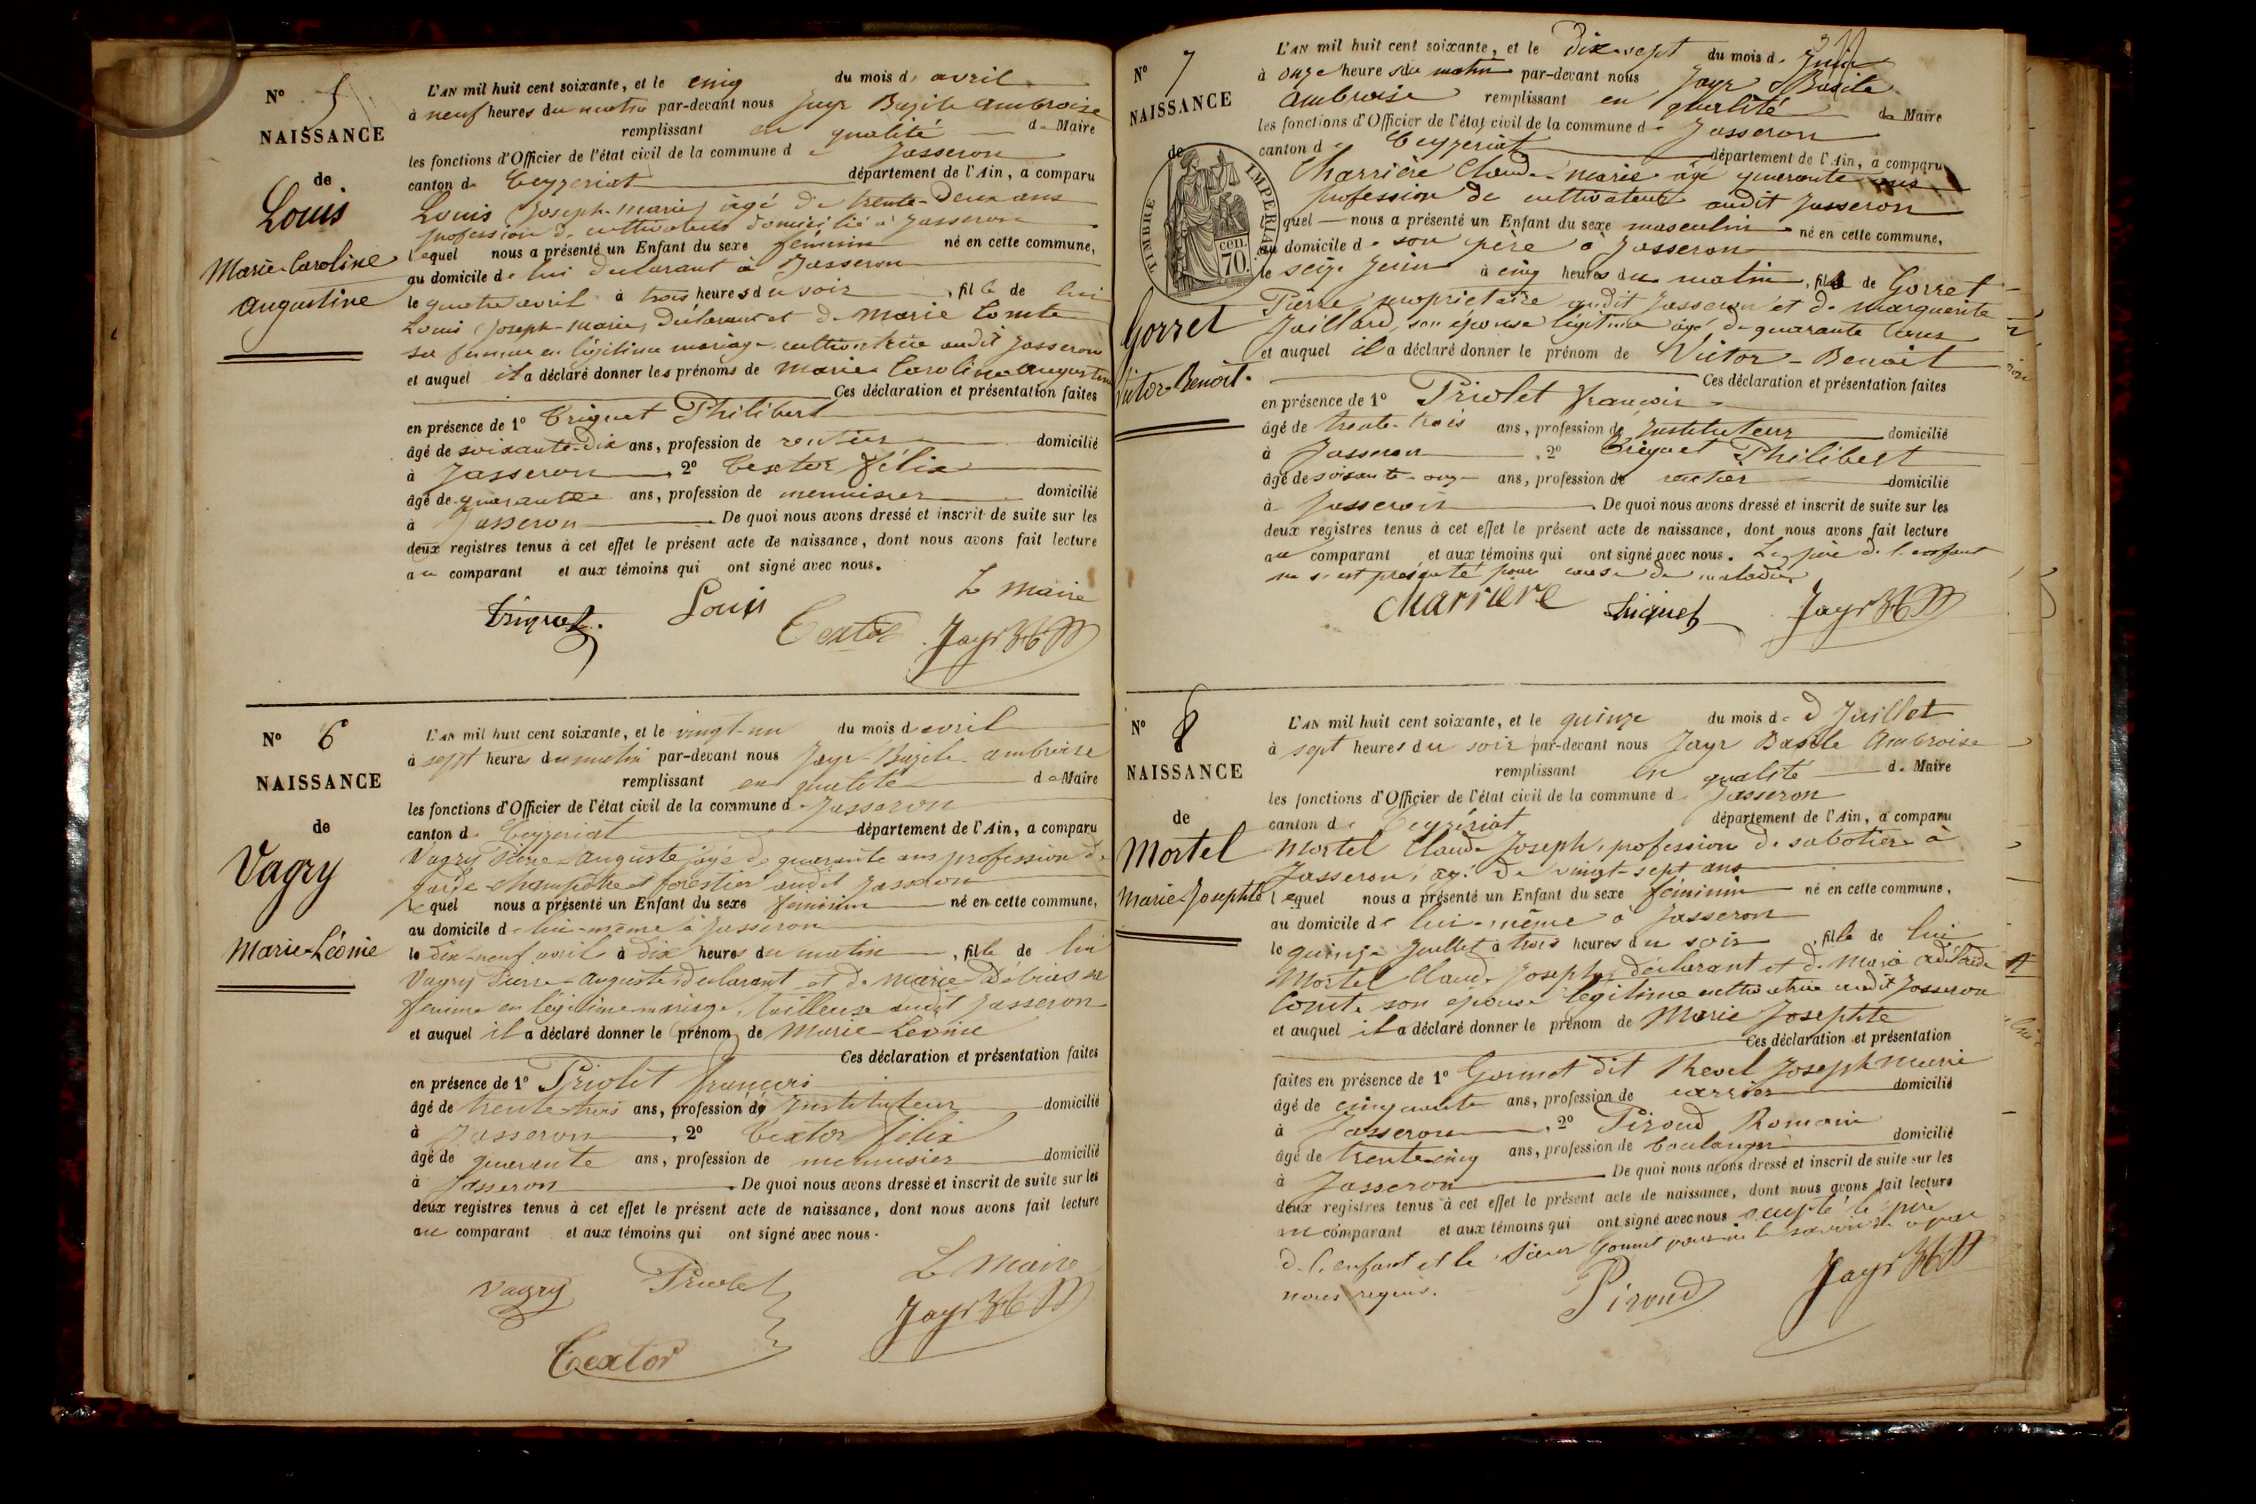 N° 5
NAISSANCE
de
Louis
Marie-Caroline
Augustine
L'AN mil huit cent soixante, et le cinq du mois d'avril
à neuf heures du matin par-devant nous Jayr Bazile Ambroise
remplissant en qualité de Maire
les fonctions d'Officier de l'état civil de la commune de Jasseron
canton de Ceyzeriat département de l'Ain, a comparu
Louis Joseph-Marie, âgé de trente-deux ans
profession de cultivateur domicilié à Jasseron
lequel nous a présenté un Enfant du sexe féminin né en cette commune,
au domicile de lui déclarant à Jasseron
le quatre avril à trois heures du soir, fille de lui
Louis Joseph-Marie, déclarant et de Marie Comte
sa femme en légitime mariage cultivatrice audit Jasseron
et auquel il a déclaré donner les prénoms de Marie Caroline Augustine
Ces déclaration et présentation faites
en présence de 1° Triquet Philibert
âgé de soixante-dix ans, profession de rentier domicilié
à Jasseron, 2° Textor félix
âgé de quarante ans, profession de menuisier domicilié
à Jasseron De quoi nous avons dressé et inscrit de suite sur les
deux registres tenus à cet effet le présent acte de naissance, dont nous avons fait lecture
au comparant et aux témoins qui ont signé avec nous.
Le Maire
Triquet Louis Textor Jayr
N° 6
NAISSANCE
de
Vagry
Marie-Léonie
L'AN mil huit cent soixante, et le vingt-un du mois d'avril
à sept heures du matin par-devant nous Jayr Bazile Ambroise
remplissant en qualité de Maire
les fonctions d'Officier de l'état civil de la commune de Jasseron
canton de Ceyzeriat département de l'Ain, a comparu
Vagry Pierre-Auguste, âgé de quarante ans profession de
garde champêtre et forestier audit Jasseron
lequel nous a présenté un Enfant du sexe féminin né en cette commune,
au domicile de lui-même à Jasseron
le dix-neuf avril à dix heures du matin, fille de lui
Vagry Pierre-Auguste déclarant et de Marie Débias sa
femme en légitime mariage, tailleuse audit Jasseron
et auquel il a déclaré donner le prénom de Marie-Léonie
Ces déclaration et présentation faites
en présence de 1° Priolet françois
âgé de trente-trois ans, profession de Instituteur domicilié
à Jasseron, 2° Textor félix
âgé de quarante ans, profession de menuisier domicilié
à Jasseron De quoi nous avons dressé et inscrit de suite sur les
deux registres tenus à cet effet le présent acte de naissance, dont nous avons fait lecture
au comparant et aux témoins qui ont signé avec nous.
Le Maire
Vagry Priolet Jayr
Textor
N° 7
NAISSANCE
de
TIMBRE IMPERIAL
cen.
70.
Gorret
Victor-Benoit.
L'AN mil huit cent soixante, et le Dix-sept du mois de Juin
à onze heures du matin par-devant nous Jayr Basile
Ambroise remplissant en qualité de Maire
les fonctions d'Officier de l'état civil de la commune de Jasseron
canton de Ceyzeriat département de l'Ain, a comparu
Charrière Claude-Marie âgé quarante ans
profession de cultivateur audit Jasseron
lequel nous a présenté un Enfant du sexe masculin né en cette commune,
au domicile de son père à Jasseron
le seize Juin à cinq heures du matin, fils de Gorret
Pierre, propriétaire audit Jasseron et de Marguerite
Jaillard, son épouse légitime âgé de quarante ans
et auquel il a déclaré donner le prénom de Victor-Benoit
Ces déclaration et présentation faites
en présence de 1° Priolet françois
âgé de trente-trois ans, profession de Instituteur domicilié
à Jasseron, 2° Triquet Philibert
âgé de soixante-onze ans, profession de rentier domicilié
à Jasseron De quoi nous avons dressé et inscrit de suite sur les
deux registres tenus à cet effet le présent acte de naissance, dont nous avons fait lecture
au comparant et aux témoins qui ont signé avec nous. Le père de l'enfant
ne s'est présenté pour cause de maladie
Charrière Triquet Jayr
N° 8
NAISSANCE
de
Mortel
Marie-Josephte
L'AN mil huit cent soixante, et le quinze du mois de Juillet
à sept heures du soir par-devant nous Jayr Basile Ambroise
remplissant en qualité de Maire
les fonctions d'Officier de l'état civil de la commune de Jasseron
canton de Ceyzériat département de l'Ain, a comparu
Mortel Claude Joseph, profession de sabotier à
Jasseron, âgé de vingt-sept ans
lequel nous a présenté un Enfant du sexe féminin né en cette commune,
au domicile de lui-même à Jasseron
le quinze Juillet à trois heures du soir, fille de lui
Mortel Claude Joseph, déclarant et de Marie
Comte son épouse légitime cultivatrice audit Jasseron
et auquel il a déclaré donner le prénom de Marie Josephte
Ces déclaration et présentation
faites en présence de 1° Gonnet dit Revel Joseph Marie
âgé de cinquante ans, profession de carrier domicilié
à Jasseron, 2° Piroud Romain
âgé de trente-cinq ans, profession de boulanger domicilié
à Jasseron De quoi nous avons dressé et inscrit de suite sur les
deux registres tenus à cet effet le présent acte de naissance, dont nous avons fait lecture
au comparant et aux témoins qui ont signé avec nous excepté le père
de l'enfant et le sieur Gonnet pour ne le savoir de ce par
nous requis.
Piroud Jayr